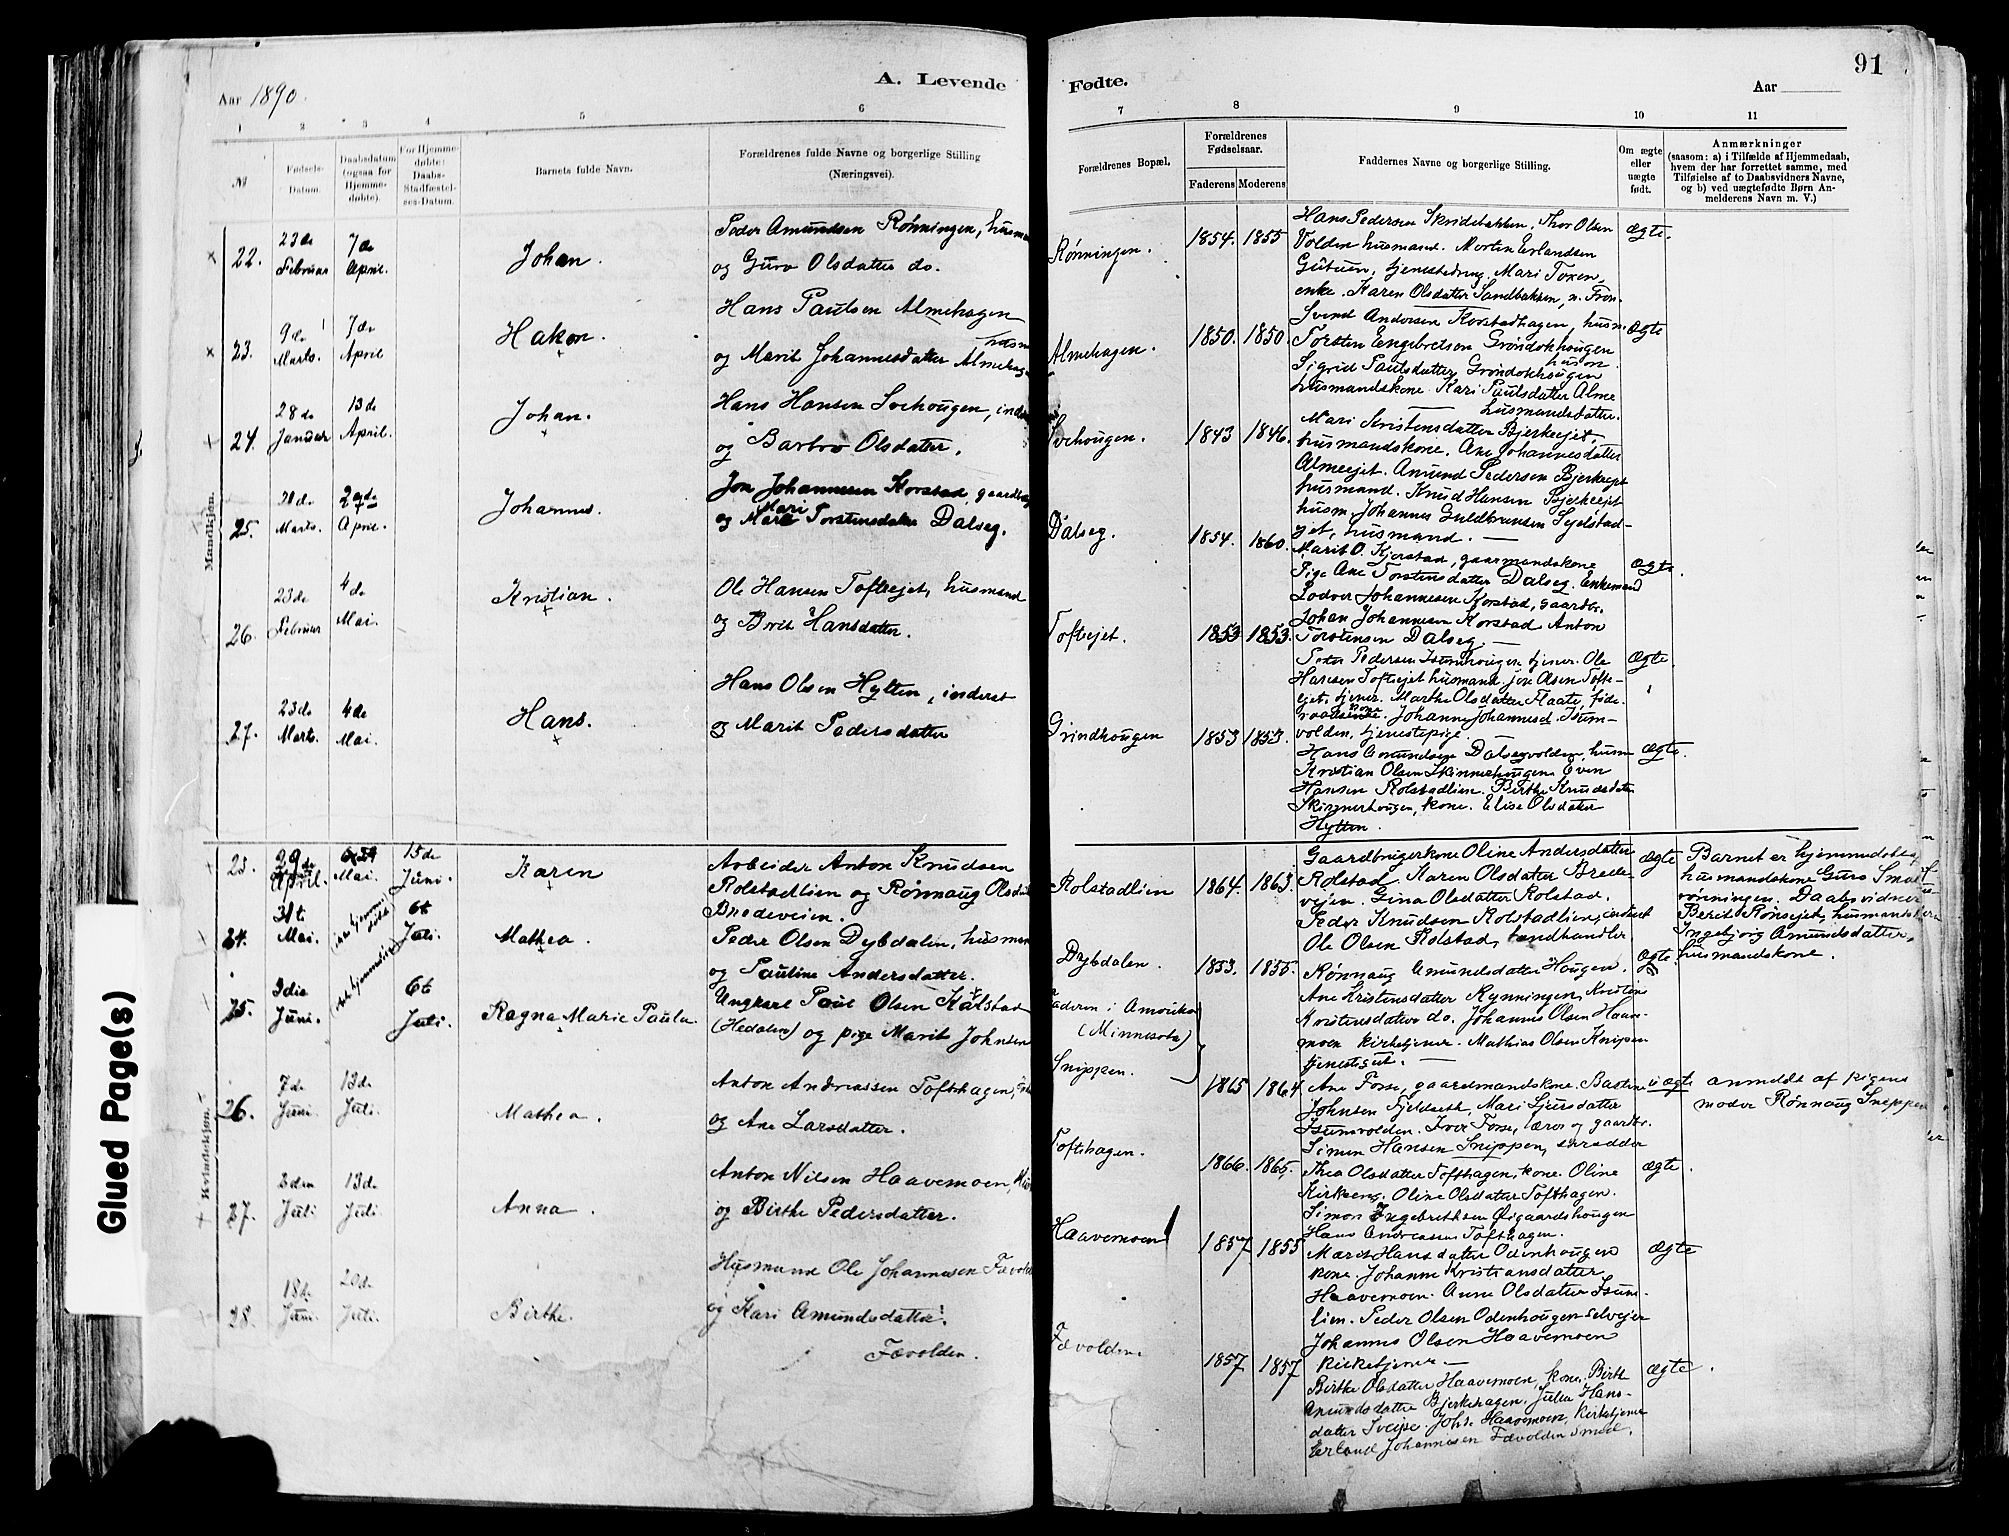 Aar 1890.
A. Levende
Fødte.
Aar
91
1
2
3
4
5
6
7
8
9
10
11
№
Fødsels-
Datum.
Daabsdatum
(ogsaa for
Hjemme-
døbte).
For Hjemme-
døbte:
Daabs-
Stadfæstel-
ses-Datum.
Barnets fulde Navn.
Forældrenes fulde Navne og borgerlige Stilling
(Næringsvei).
Forældrenes Bopæl.
Forældrenes
Fødselsaar.
Faderens
Moderens
Faddernes Navne og borgerlige Stilling.
Om ægte
eller
uægte
født.
Anmærkninger
(saasom: a) i Tilfælde af Hjemmedaab,
hvem der har forrettet samme, med
Tilføielse af to Daabsvidners Navne,
og b) ved uægtefødte Børn An-
melderens Navn m. V.)
Mandkjøn.
22.
23de
Februar
7de
April.
Johan.
Peder Amundsen Rønningen, husman
og Guro Olsdatter do.
Rønningen.
1854. 1855
Hans Pedersen Skridebakken, Thor Olsen
Volden husmand. Morten Erlandsen
tjenestedreng. Mari Toxen
enke. Karen Olsdatter Sandbakken,
ægte.
23.
9de
Marts.
7de
April
Hakon.
Hans Paulsen Almehagen
husm
og Marit Johannesdatter Almehag
Almehagen.
1850. 1850
Svend Andersen Korstadhagen, husm
Torsten Engebretsen Grøndokhougen
husm.
Sigrid Paulsdatter Grøndokhougen
husmandskone. Kari Paulsdatter Alme
husmandsdatter.
ægte
24.
28de
Januar
13de
April.
Johan.
Hans Hansen Svehougen, inders
og Barbro Olsdatter.
Svehougen.
1843 1846.
Mari Kristensdatter Bjerkeejet,
husmandskone. Ane Johannesdatter
Almeejet. Amund Pedersen Bjerkeejet
husmand. Knud Hansen Bjerkeejet
husm. Johannes Guldbrensen
ejet, husmand.
25.
Marts.
April
Johannes.
Jon Johannesen Korstad, gaardbrug
Mari
og Torstensdatter Dalseg.
Dalseg.
1854. 1860.
Marit O. Kjorstad, gaarmandskone
Pige Ane Torstensdatter Dalseg. Enkemand
Lodver Johannesen Korstad, gaardb.
Johan Johannesen Korstad. Anton
Torstensen Dalseg.
ægte.
26.
23de
Februar
4de
Mai.
Kristian.
Ole Hansen Tofteejet, husmand
og Brit Hansdatter.
Tofteejet.
1853 1853.
Peder Pedersen Isumhougen tjener. Ole
Hansen Tofteejet husmand. Jon Olsen Tofte-
ejet, tjener. Marthe Olsdatter Flaate, føde-
kone. Johanne Johannesd. Isum-
volden, tjenestepige.
Ægte.
27.
23de
Marts.
4de
Mai.
Hans.
Hans Olsen Hylten, inderst
og Marit Pedersdatter
Grindhougen
1853 1853.
Hans Amundsen Dalsegvolden, husm
Kristian Olsen Skinnerhougen. Even
Hansen Rolstadlien. Birthe Knudsdatter
Skinnerhougen, kone. Elise Olsdatter
Hylten.
ægte.
Kvindekjøn.
23.
29de
April.
Mai.
15de
Juni.
Karen
Arbeider Anton Knudsen
Rolstadlien og Rønnaug Olsdat
Bredeveien.
Rolstadlien
1864. 1863.
Gaardbrugerkone Oline Andersdatter
Rolstad. Karen Olsdatter Brede-
veien. Gina Olsdatter Rolstad.
Peder Knudsen Rolstadlien, inderst
Ole Olsen Rolstad, landhandler
ægte
Barnet er hjemmedøbt af
husmandskone Guro Smed
rønningen. Daabsvidner
Berit Rønsejet, husmandskone
Ingebjørg Amundsdatter,
husmandskone.
24.
31te
Mai.
(ikke hjemme-
døbt)
6te
Juli.
Mathea.
Peder Olsen Dybdalen, husman
og Pauline Andersdatter.
Dybdalen.
1853. 1855.
Rønnaug Amundsdatter Hougen.
Ane Kristensdatter Rynningen. Kristine
Kristensdatter do. Johannes Olsen Haave-
moen kirketjener. Mathias Olsen Knipen
tjenestegut.
ægte.
25.
3die
Juni.
6te
Juli.
Ragna Marie Paula.
Ungkarl Paul Olsen Kalstad
(Hedalen) og pige Marit Johnsen
Faderen i Amerika
(Minnesota)
Snippen.
1865 1864
Ane Forse, gaardmandskone. Bastine
Johnsen Fjeldseth, Mari Sjursdatter
Isumvolden. Iver Forse, lærer og gaardbr.
Simen Hansen Snippen, skrædder
uægte
anmeldt af pigens
moder Rønnaug Snippen
26.
7de
Juni.
13de
Juli.
Mathea.
Anton Andreassen Toftehagen,
og Ane Larsdatter.
Toftehagen.
1866. 1865.
Thea Olsdatter Toftehagen, kone. Oline
Kirkeeng. Oline Olsdatter Tofthagen.
Simon Engebretsen Øigaardshougen
Hans Andreassen Tofthagen.
ægte.
27.
2den
Juli.
13de
Juli.
Anna.
Anton Nilsen Haavemoen,
og Birthe Pedersdatter.
Haavemoen
1857. 1855
Marit Hansdatter Odenhougen
kone. Johanne Kristiansdatter
Haavemoen. Anne Olsdatter Isum-
lien. Peder Olsen Odenhougen selveier
Johannes Olsen Haavemoen
kirketjener
ægte
28.
18de
Juni.
20de
Juli.
Birthe.
Husmand Ole Johannesen Fævold
og Kari Amundsdatter
Fævolden.
Fævolden.
1857 1857
Birthe Olsdatter Haavemoen, kone. Birthe
Amundsdatter Bjerkehagen. Julia Hans-
datter Sveipe. Johs Haavemoen, kirketjener
Erland Johannesen Fævolden smed.
ægte.
Glued Page(s)